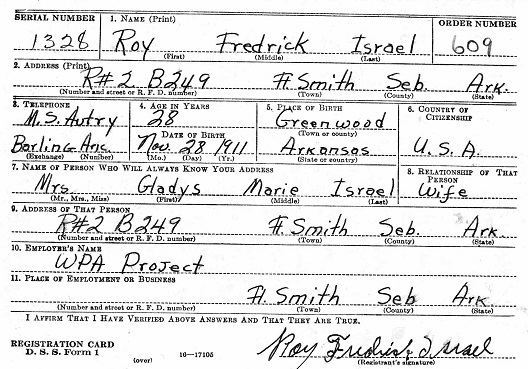 SERIAL NUMBER 1. NAME (Print) ORDER NUMBER
1328 Roy Fredrick Israel 609
(First) (Middle) (Last)
2. ADDRESS (Print)
R#2 B249 Ft Smith Seb. Ark.
(Number and street or R. F. D. number) (Town) (County) (State)
3. TELEPHONE 4. AGE IN YEARS 5. PLACE OF BIRTH 6. COUNTRY OF CITIZENSHIP
M.S. Autry 28 Greenwood
DATE OF BIRTH (Town or county)
Barling Arc. Nov. 28 1911 Arkansas U.S.A.
(Exchange) (Number) (Mo.) (Day) (Yr.) (State or country)
7. NAME OF PERSON WHO WILL ALWAYS KNOW YOUR ADDRESS 8. RELATIONSHIP OF THAT PERSON
Mrs. Gladys Marie Israel Wife
(Mr., Mrs., Miss) (First) (Middle) (Last)
9. ADDRESS OF THAT PERSON
R#2 B249 Ft. Smith Seb. Ark.
(Number and street or R. F. D. number) (Town) (County) (State)
10. EMPLOYER'S NAME
WPA Project
11. PLACE OF EMPLOYMENT OR BUSINESS
Ft. Smith Seb Ark.
(Number and street or R. F. D. number) (Town) (County) (State)
I AFFIRM THAT I HAVE VERIFIED ABOVE ANSWERS AND THAT THEY ARE TRUE.
REGISTRATION CARD
D. S. S. Form 1 (over) 16—17105 Roy Fredrick Israel
(Registrant's signature)